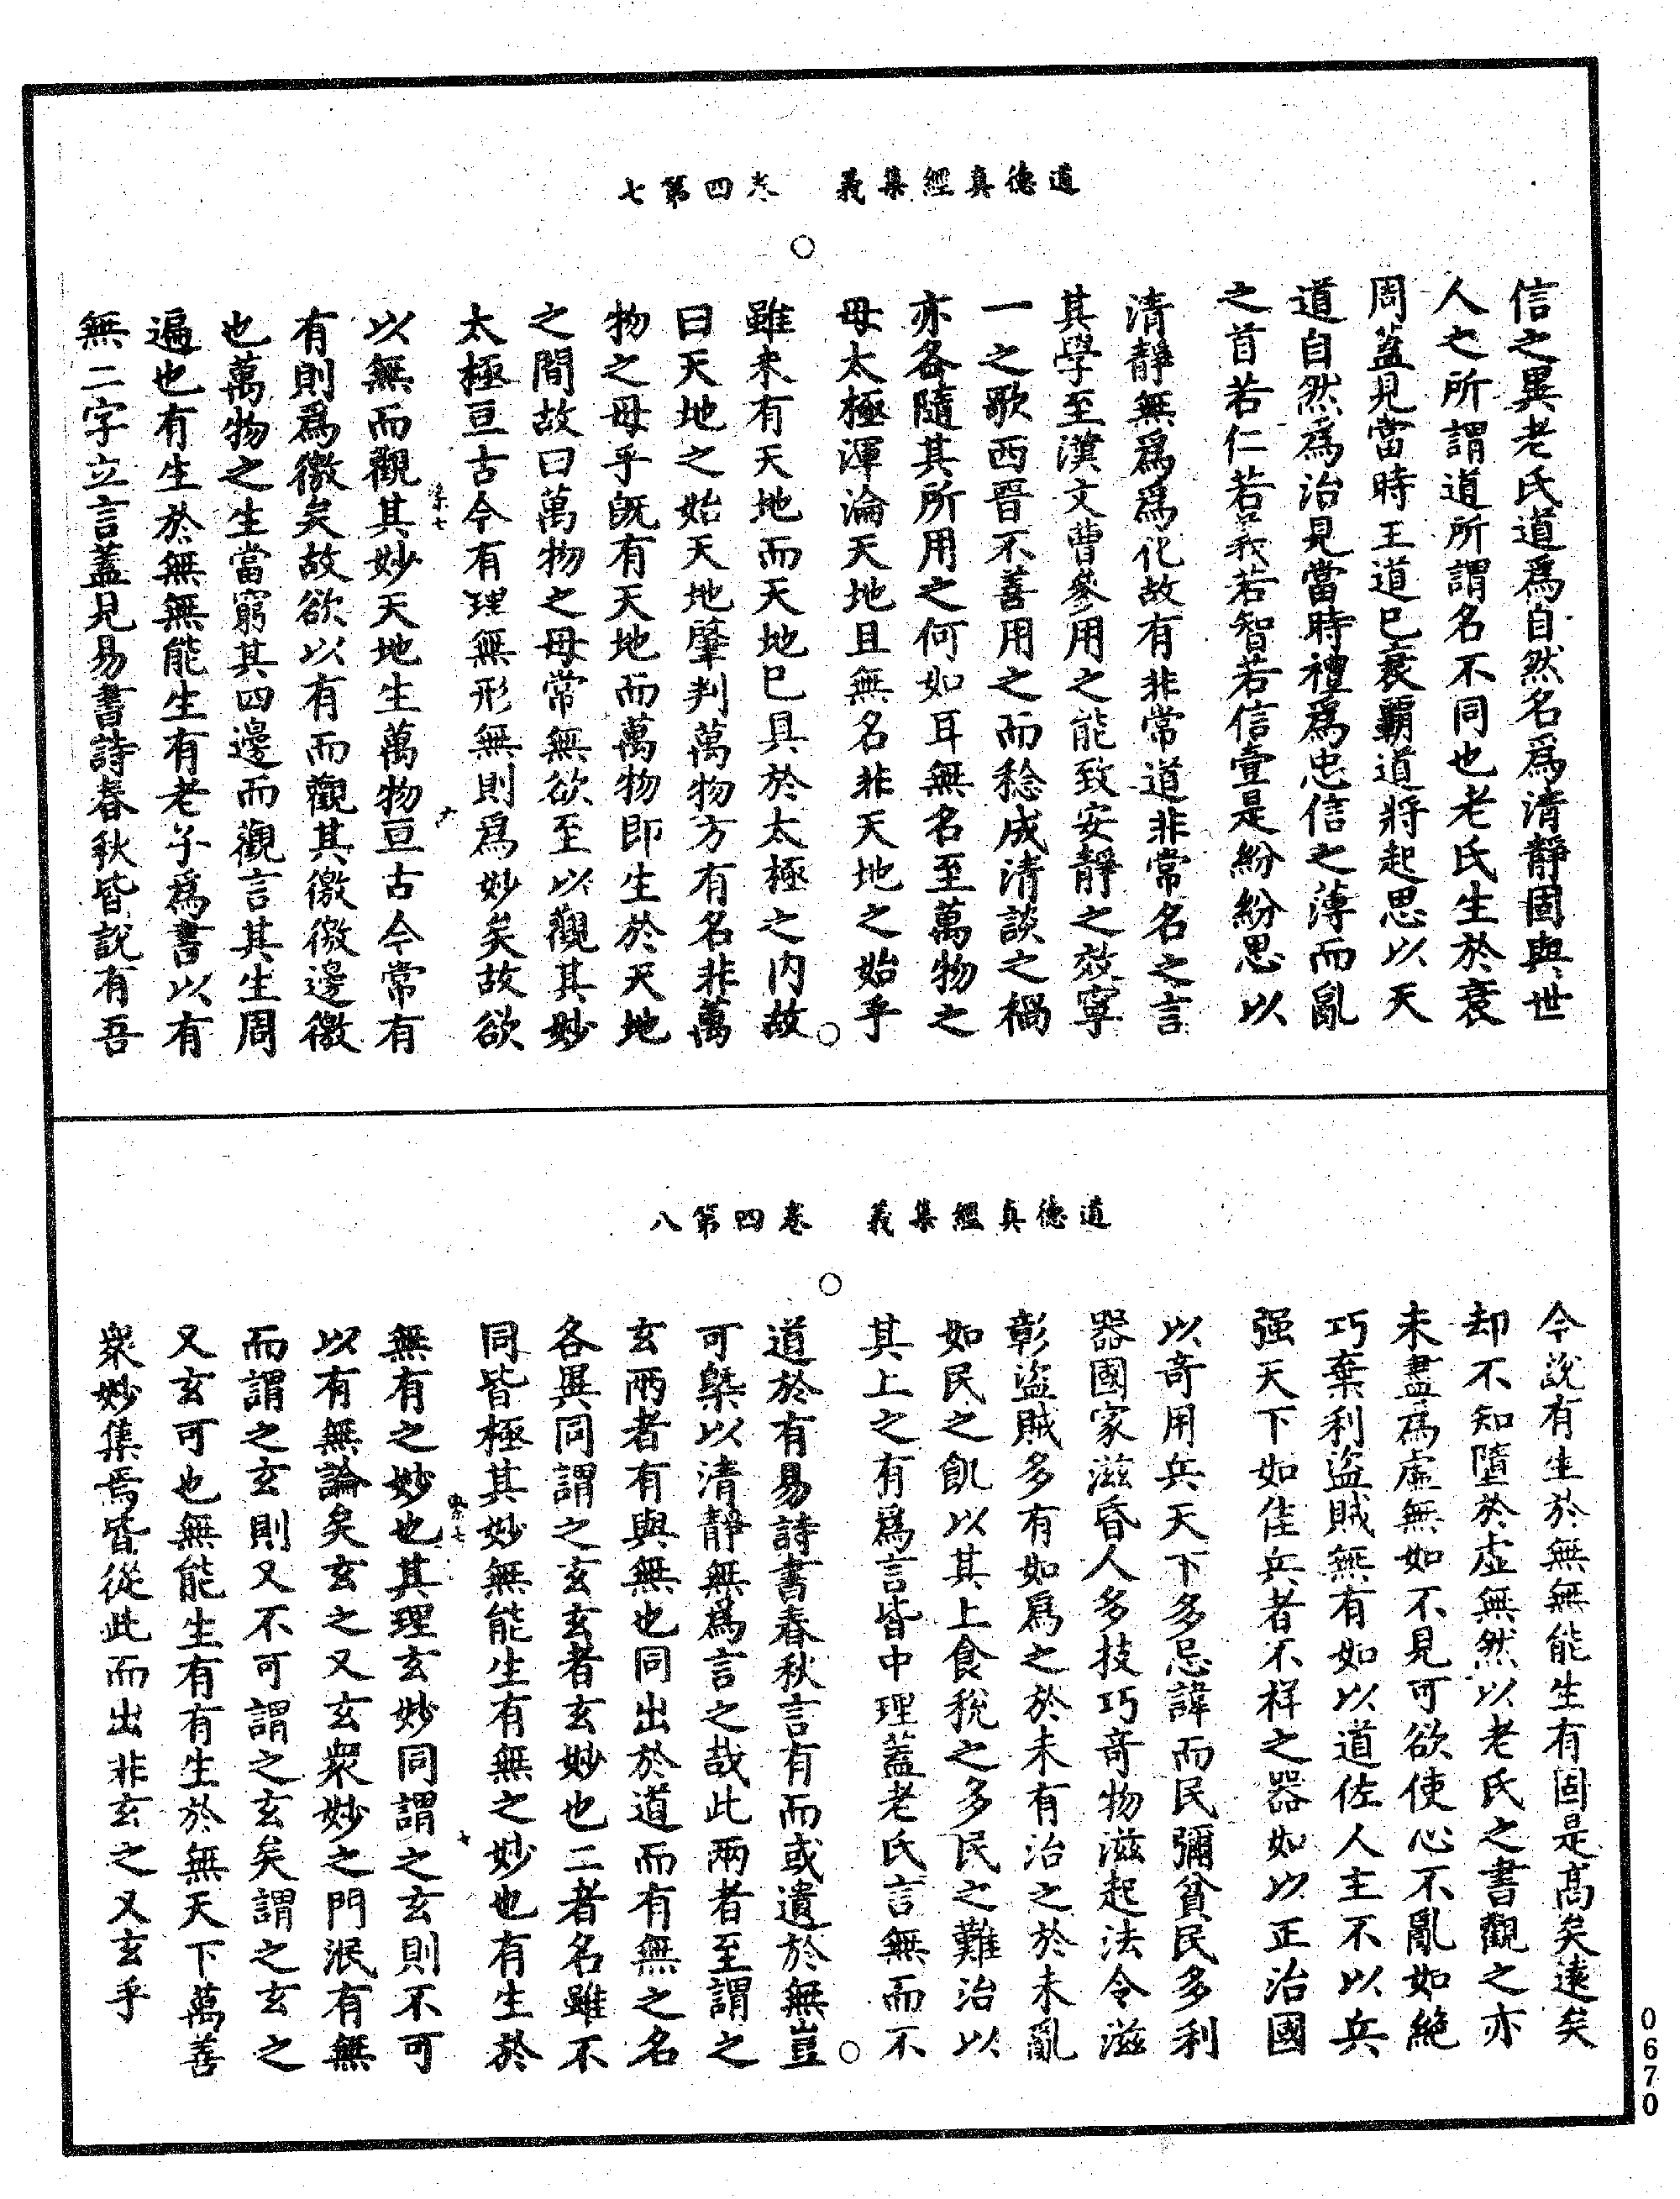 道德真經集義　卷四第七
信之異老氏道爲自然名爲清靜固與世
人之所謂道所謂名不同也老氏生於衰
周蓋見當時王道已衰霸道將起思以天
道自然爲治見當時禮爲忠信之薄而亂
之首若仁若義若智若信壹是紛紛思以
清靜無爲爲化故有非常道非常名之言
其學至漢文曹參用之能致安靜之效寧
一之歌西晉不善用之而稔成清談之禍
亦各隨其所用之何如耳無名至萬物之
母太極渾淪天地且無名非天地之始乎
雖未有天地而天地已具於太極之內故
曰天地之始天地肇判萬物方有名非萬
物之母乎旣有天地而萬物即生於天地
之間故曰萬物之母常無欲至以觀其妙
太極亘古今有理無形無則爲妙矣故欲
以無而觀其妙天地生萬物亘古今常有
有則爲徼矣故欲以有而觀其徼徼邊徼
也萬物之生當窮其四邊而觀言其生周
遍也有生於無無能生有老子爲書以有
無二字立言蓋見易書詩春秋皆說有吾
道德真經集義　卷四第八
今說有生於無無能生有固是高矣遠矣
却不知墮於虛無然以老氏之書觀之亦
未盡爲虛無如不見可欲使心不亂如絕
巧棄利盜賊無有如以道佐人主不以兵
强天下如佳兵者不祥之器如以正治國
以奇用兵天下多忌諱而民彌貧民多利
器國家滋昏人多技巧奇物滋起法令滋
彰盜賊多有如爲之於未有治之於未亂
如民之飢以其上食稅之多民之難治以
其上之有爲言皆中理蓋老氏言無而不
道於有易詩書春秋言有而或遺於無豈
可槩以清靜無爲言之哉此兩者至謂之
玄兩者有與無也同出於道而有無之名
各異同謂之玄玄者玄妙也二者名雖不
同皆極其妙無能生有無之妙也有生於
無有之妙也其理玄妙同謂之玄則不可
以有無論矣玄之又玄衆妙之門泯有無
而謂之玄則又不可謂之玄矣謂之玄之
又玄可也無能生有有生於無天下萬善
衆妙集焉皆從此而出非玄之又玄乎
0670